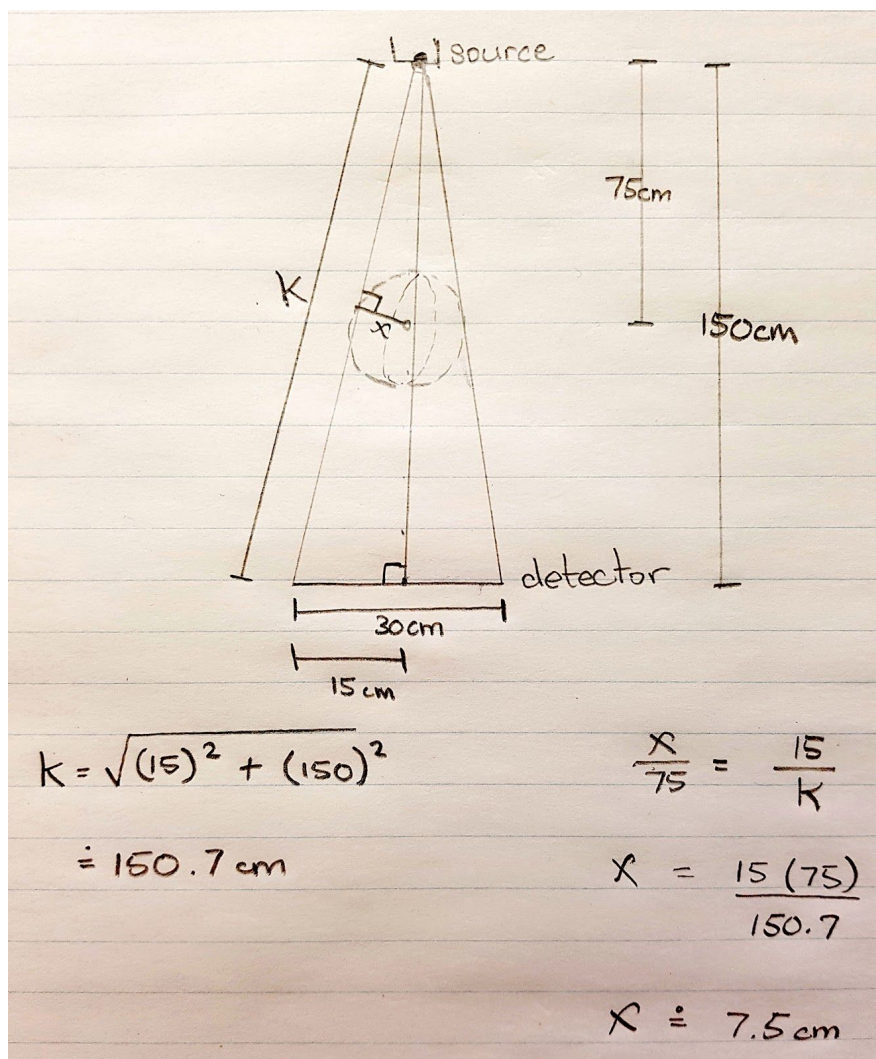 source
75cm
K
x
150cm
detector
30cm
15cm
K = √(15)² + (150)²
≐ 150.7 cm
x/75 = 15/K
x = 15(75)/150.7
x ≐ 7.5cm